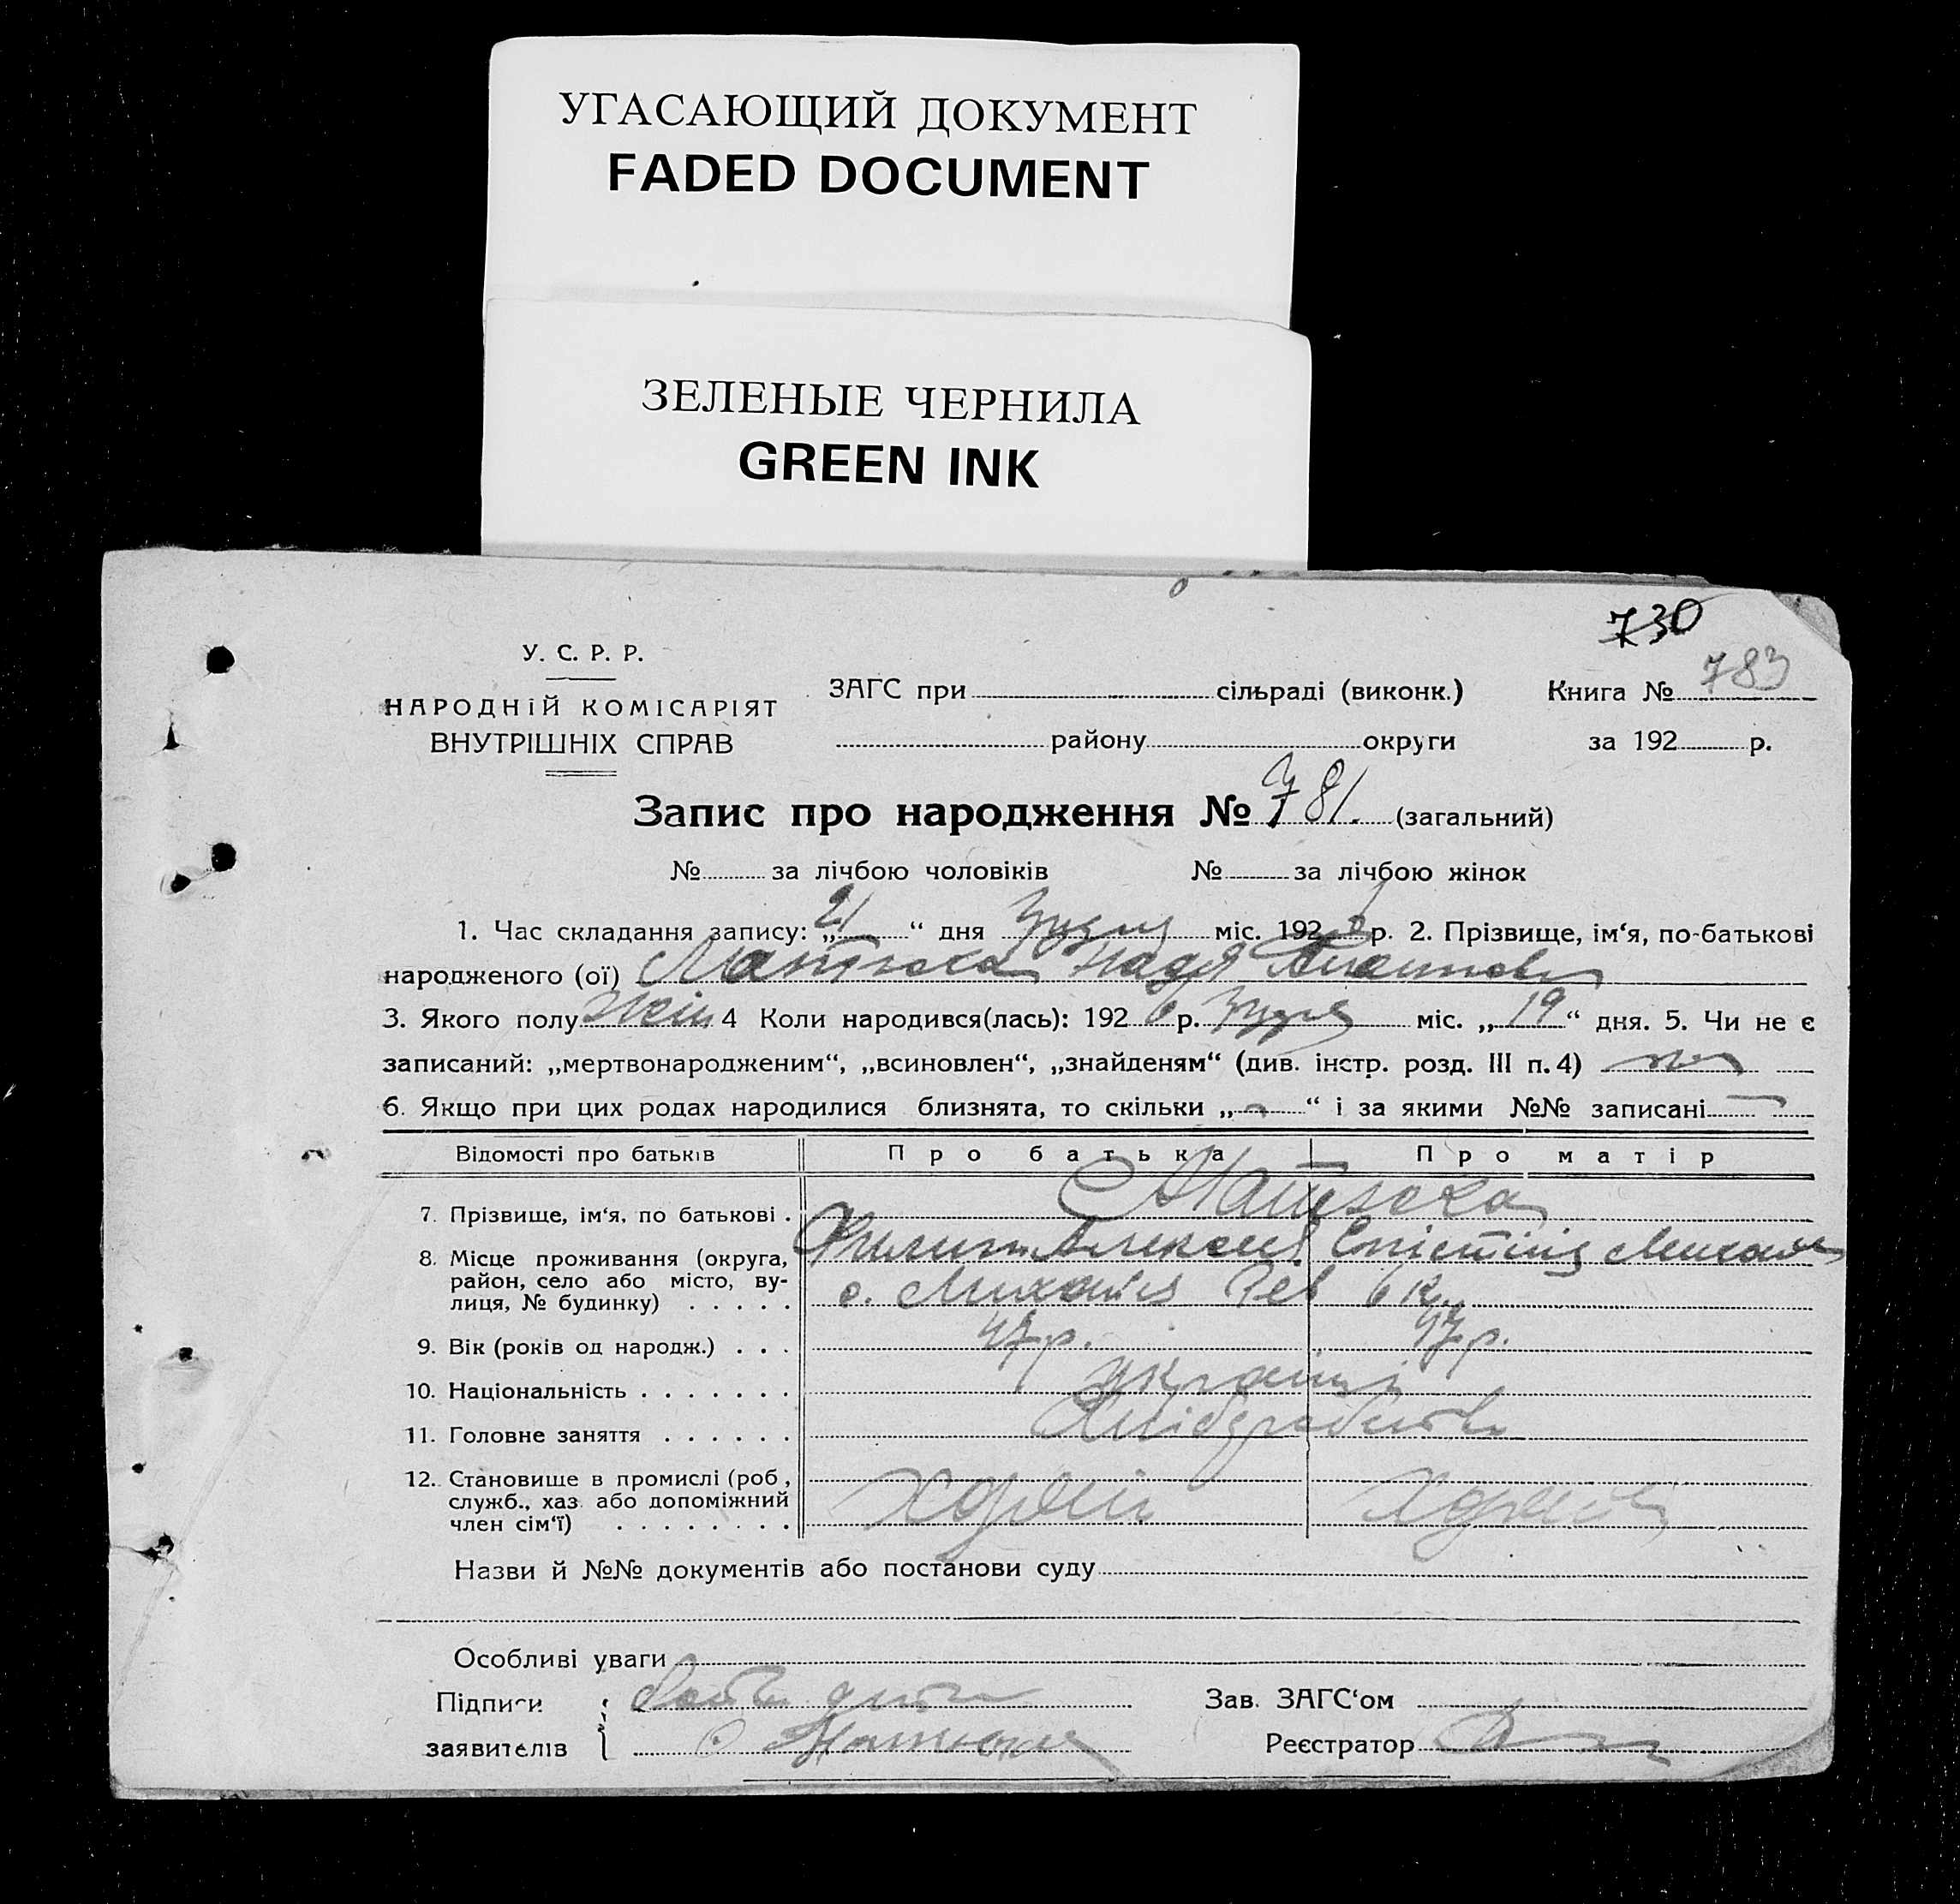 УГАСАЮЩИЙ ДОКУМЕНТ
FADED DOCUMENT
ЗЕЛЕНЫЕ ЧЕРНИЛА
GREEN INK
730
783
У. С. Р. Р.
НАРОДНІЙ КОМІСАРІЯТ
ВНУТРІШНІХ СПРАВ
ЗАГС при сільраді (виконк.) Книга №
району округи за 192 р.
Запис про народження № 781. (загальний)
№ за лічбою чоловіків № за лічбою жінок
1. Час складання запису: „21“ дня Грудня міс. 192 р. 2. Прізвище, ім‘я, по-батькові
народженого (ої) Надя
3. Якого полу жін 4 Коли народився(лась): 1926 р. Грудня міс. „19“ дня. 5. Чи не є
записаний: „мертвонародженим“, „всиновлен“, „знайденям“ (див. інстр. розд. III п. 4)
6. Якщо при цих родах народилися близнята, то скільки „ “ і за якими №№ записані
Відомості про батьків Про батька Про матір
7. Прізвище, ім‘я, по батькові
8. Місце проживання (округа,
район, село або місто, ву-
лиця, № будинку)
с.
9. Вік (років од народж.) 47 р. 47 р.
10. Національність українці
11. Головне заняття Хліборобство
12. Становище в промислі (роб.,
служб., хаз. або допоміжний
член сім‘ї)
Назви й №№ документів або постанови суду
Особливі уваги
Підписи
заявителів
Зав. ЗАГС‘ом
Реєстратор